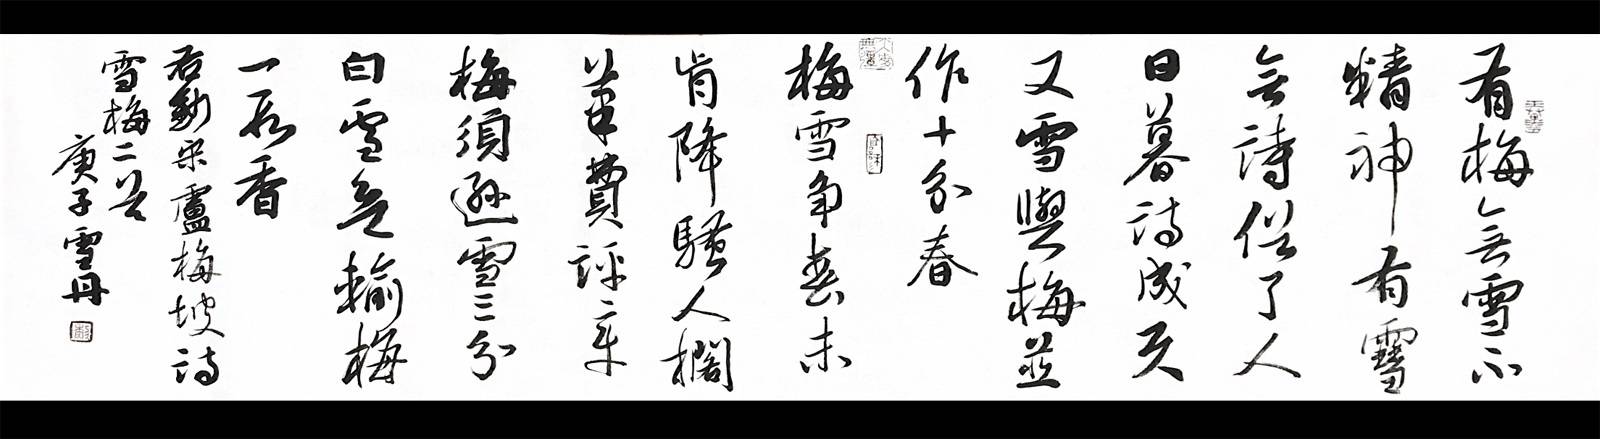 有梅無雪不
精神有雪
無詩俗了人
日暮詩成天
又雪與梅並
作十分春
梅雪争春未
肯降騷人擱
筆費評章
梅須遜雪三分
白雪却輸梅
一段香
右錄宋盧梅坡詩
雪梅二首
庚子雪丹